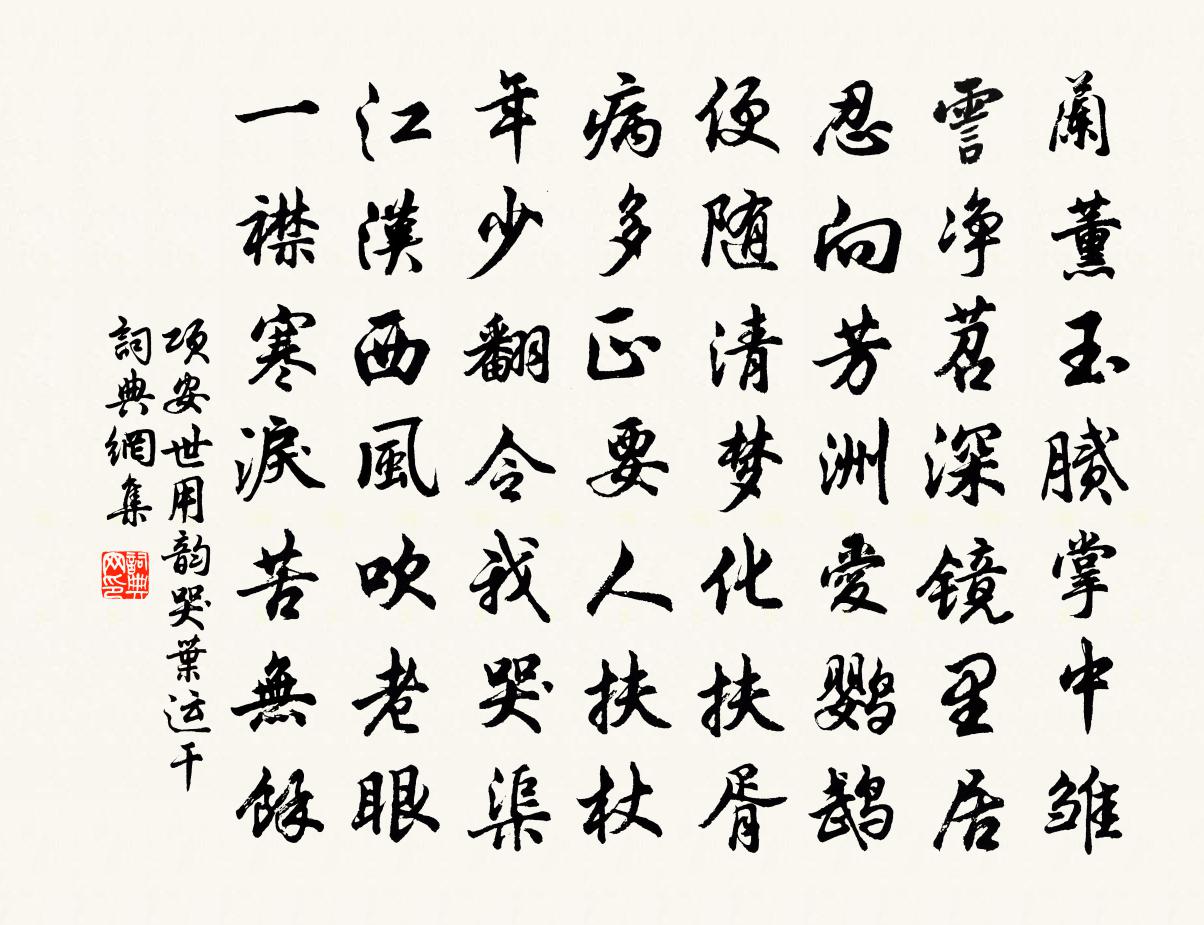 蘭薰玉膩掌中雏
霅净苕深镜里居
忍向芳洲愛鹦鹉
便随清梦化扶胥
病多正要人扶杖
年少翻令我哭渠
江漢西風吹老眼
一襟寒淚苦無餘
项安世用韵哭葉运干
詞典網集
詞典网印